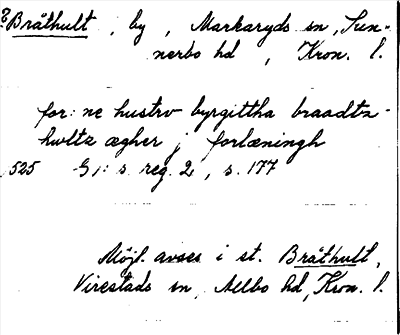 ? Bråthult, by, Markaryds sn, Sun-
nerbo hd, Kron. l.
for: ne hustrv byrgittha braadtz-
hwltz ægher j forlæningh
525 G 1: s reg. 2, s. 177
Möjl. avses i st. Bråthult,
Virestads sn, Allbo hd, Kron. l.